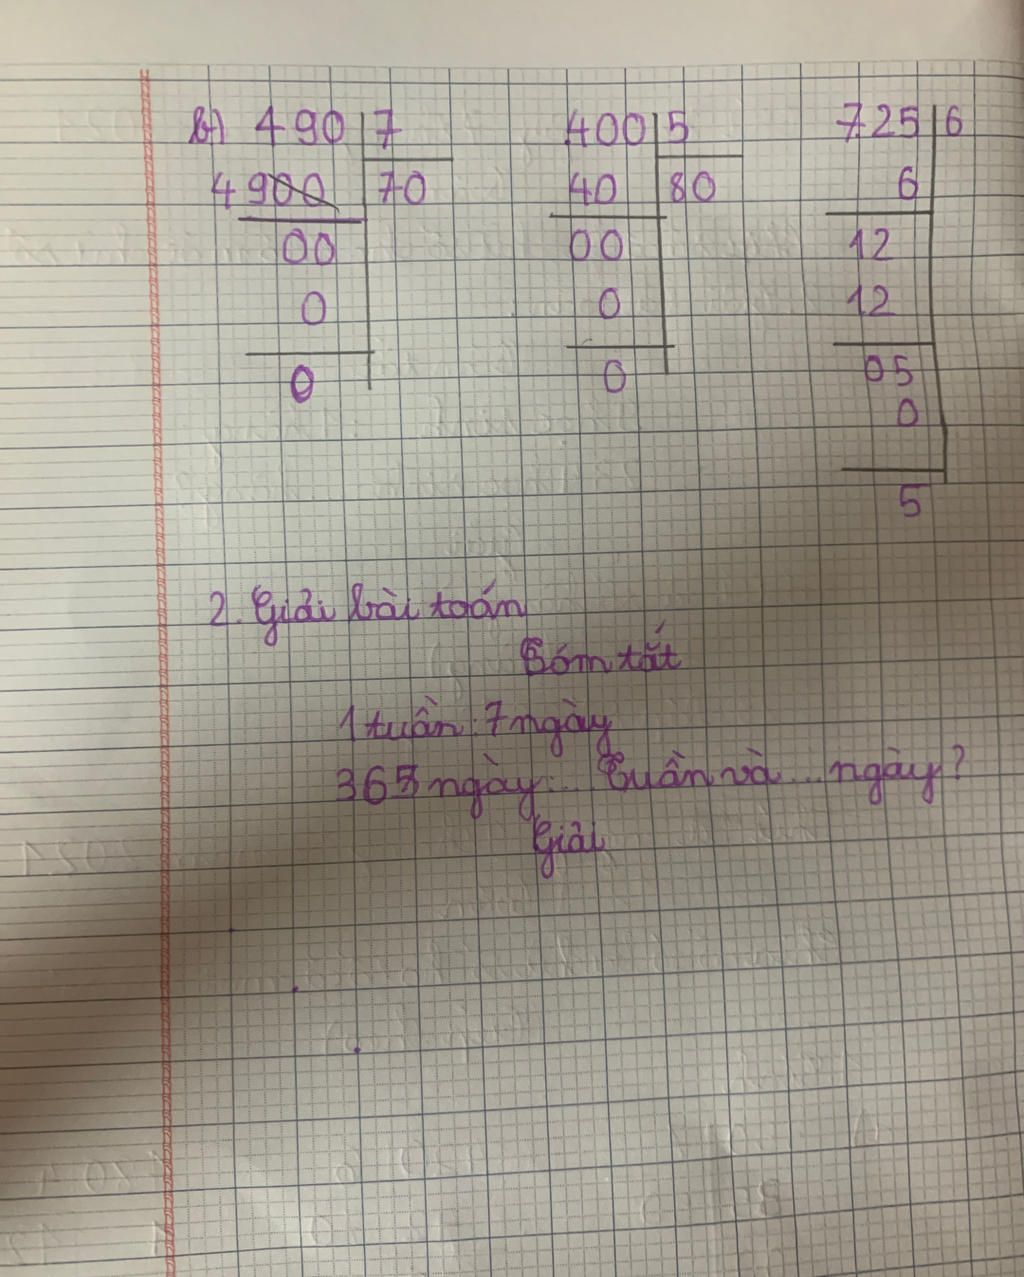 b) 490 7
4900 70
00
0
0
400 5
40 80
00
0
0
725 6
6
12
12
05
0
5
2. Giải bài toán
Tóm tắt
1 tuần : 7 ngày
365 ngày : ... tuần và ... ngày?
Giải